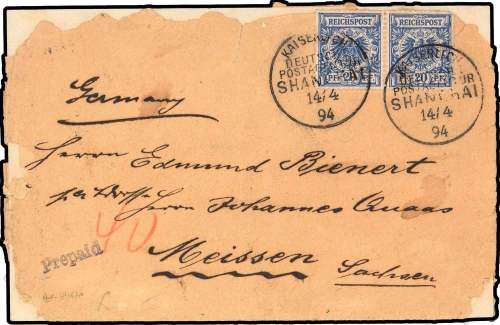 REICHSPOST REICHSPOST
KAISERLICH KAISERLICH
DEUTSCHE
POSTAGENTUR POSTAGENTUR
SHANGHAI SHANGHAI
14/4 14/4
94 94
20 20
Germany
Herrn Edmund Bienert
per Adresse Herrn Johannes Quaas
40
Prepaid
Meissen
Sachsen